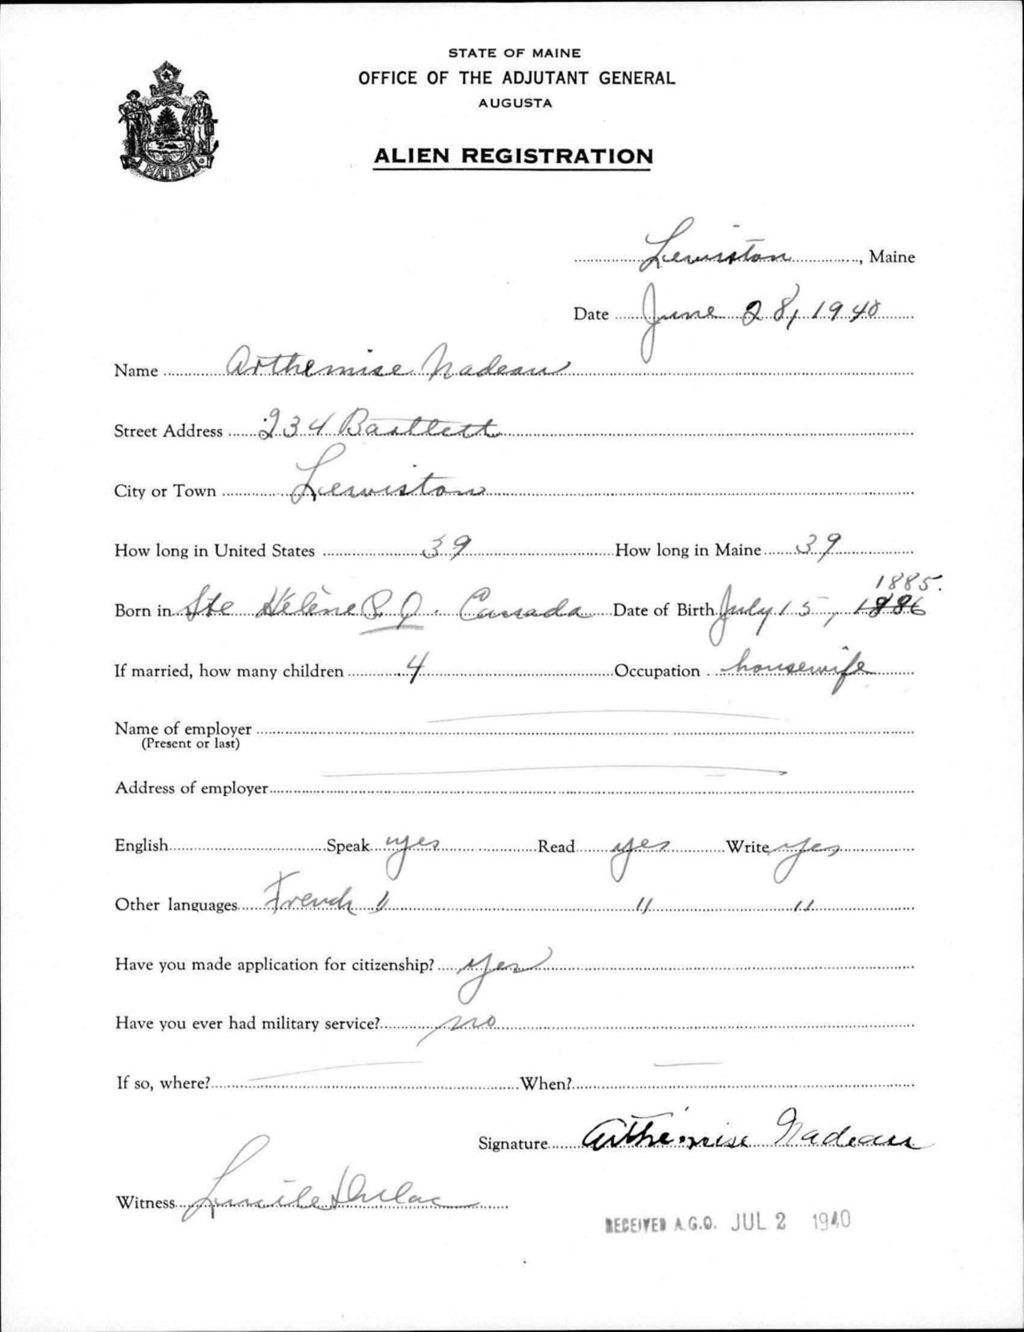 STATE OF MAINE
OFFICE OF THE ADJUTANT GENERAL
AUGUSTA
ALIEN REGISTRATION
MAINE
Lewiston, Maine
Date June 28, 1940
Name Arthemise Nadeau
Street Address 234 Bartlett
City or Town Lewiston
How long in United States 39 How long in Maine 39
1885.
Born in Ste Hélène P.Q. Canada Date of Birth July 15, 1886
If married, how many children 4 Occupation housewife
Name of employer
(Present or last)
Address of employer
English Speak yes Read yes Write yes
Other languages French " " "
Have you made application for citizenship? yes
Have you ever had military service? no
If so, where? When?
Signature Arthémise Nadeau
Witness Lucile Dulac
RECEIVED A.G.O. JUL 2 1940